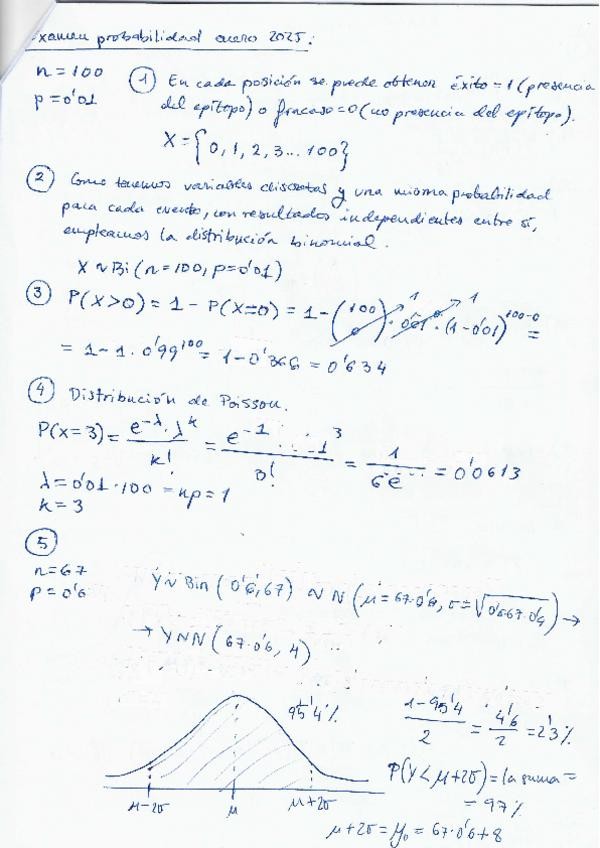 Examen probabilidad enero 2025:
n = 100
p = 0'01
① En cada posición se puede obtener éxito = 1 (presencia
del epítopo) o fracaso = 0 (no presencia del epítopo).
X = {0, 1, 2, 3... 100}
② Como tenemos variables discretas y una misma probabilidad
para cada evento, con resultados independientes entre sí,
empleamos la distribución binomial.
X ~ Bi (n = 100, p = 0'01)
③ P(X>0) = 1 - P(X=0) = 1 - (100 0) · 0'01^0 · (1-0'01)^100-0 =
1 1
= 1 - 1 · 0'99^100 = 1 - 0'366 = 0'634
④ Distribución de Poisson.
P(x=3) = e^-λ · λ^k / k! = e^-1 · 1^3 / 3! = 1 / 6e = 0'0613
λ = 0'01 · 100 = np = 1
k = 3
⑤
n = 67
p = 0'6
Y ~ Bin (0'6, 67) ~ N (μ = 67·0'6, σ = √0'6·67·0'4) →
→ Y ~ N (67·0'6, 4)
95'4%
1-95'4 / 2 = 4'6 / 2 = 2'3%
P(Y < μ+2σ) = la suma =
= 97%
μ-2σ μ μ+2σ
μ+2σ = y₀ = 67·0'6+8